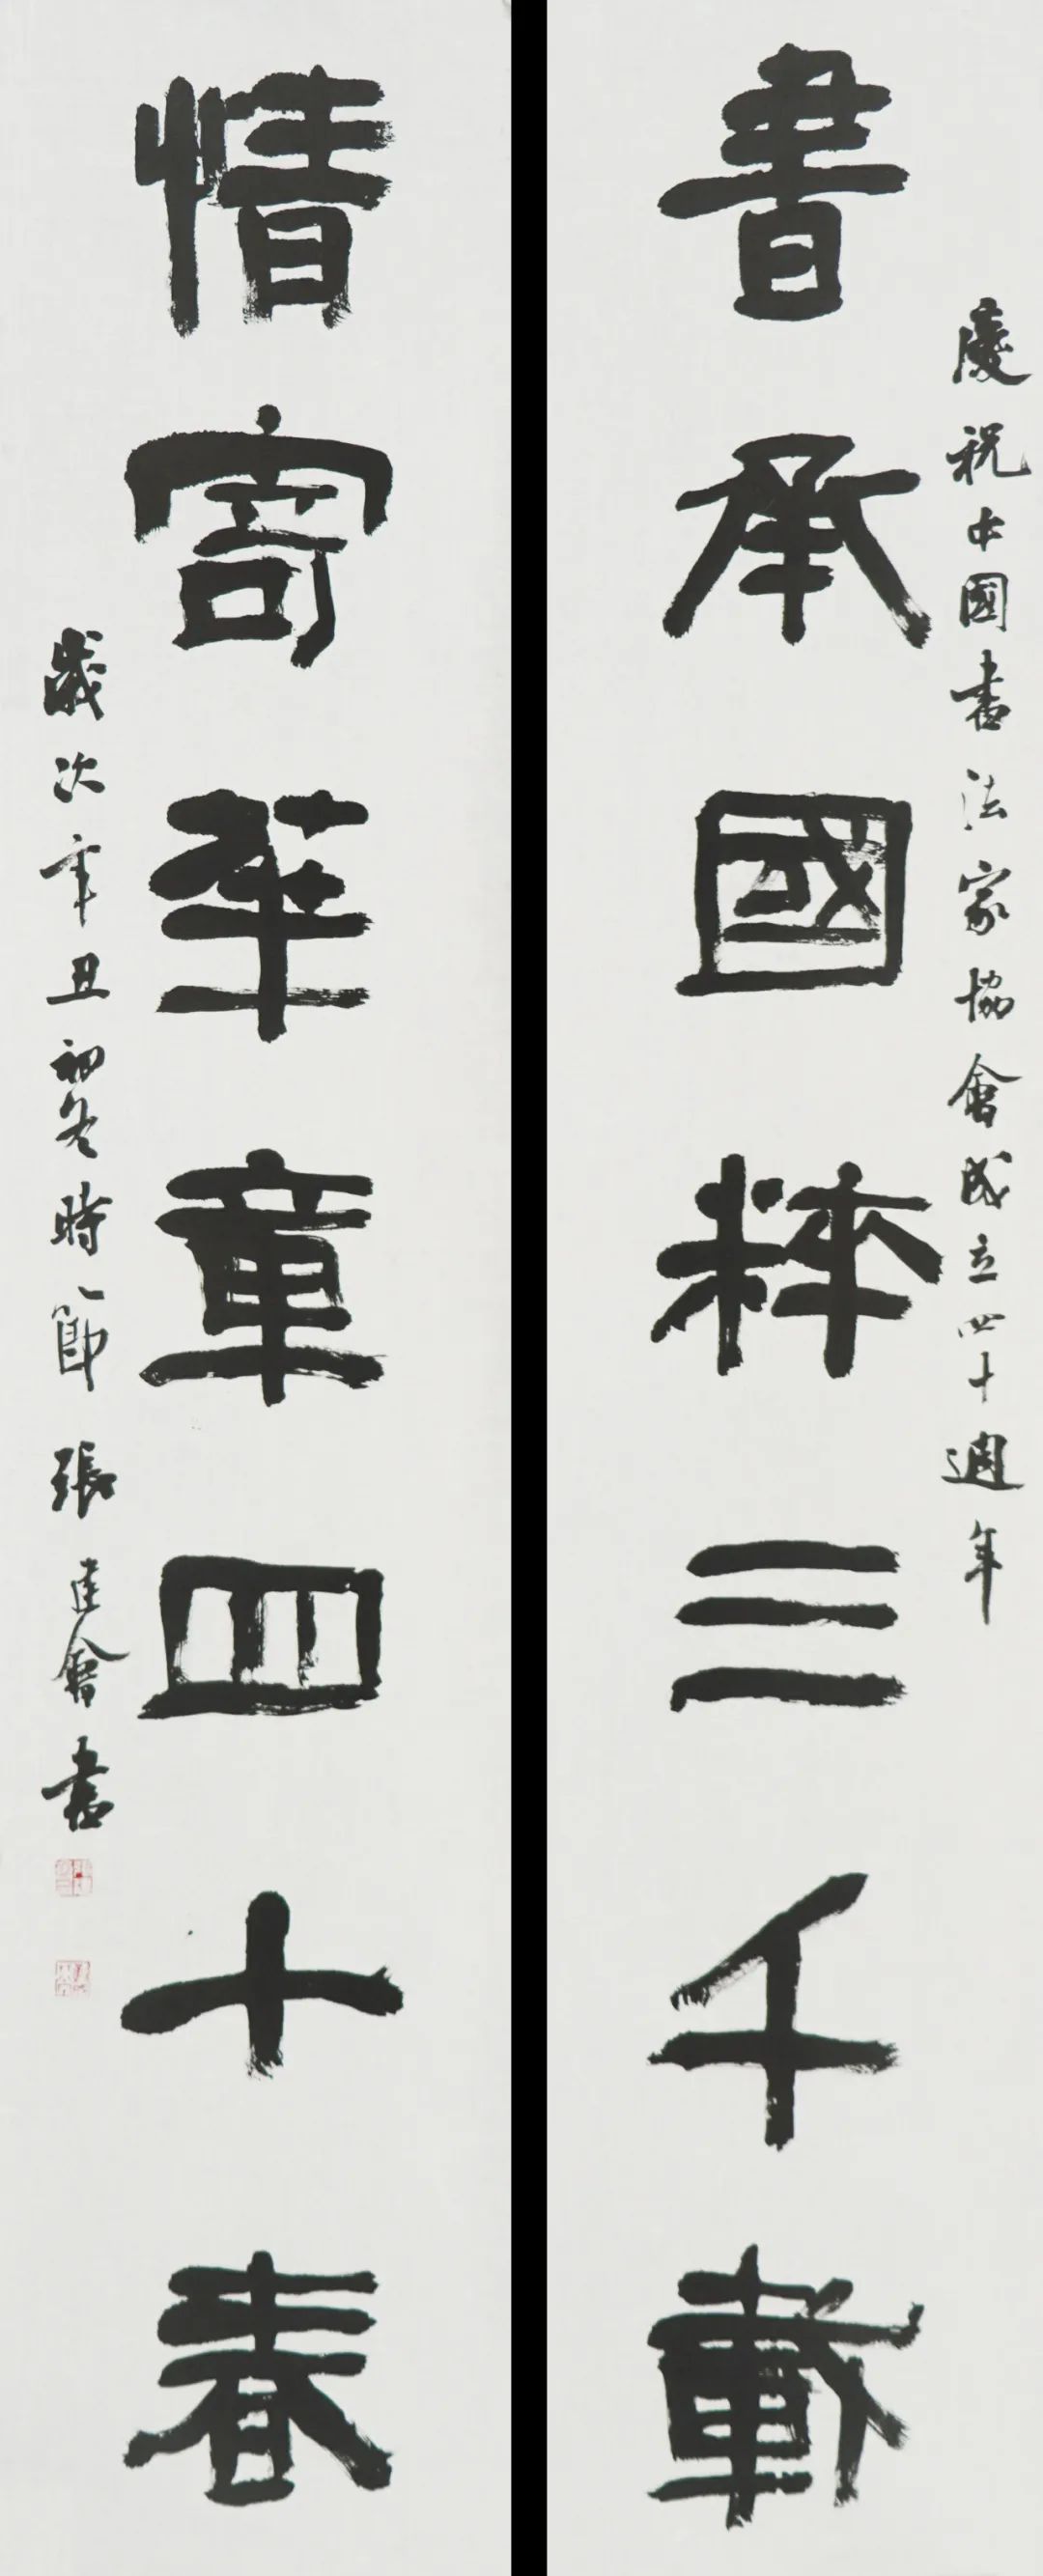 慶祝中國書法家協會成立四十週年
書承國粹三千載
情寄華章四十春
歲次辛丑初冬時節 張建會書